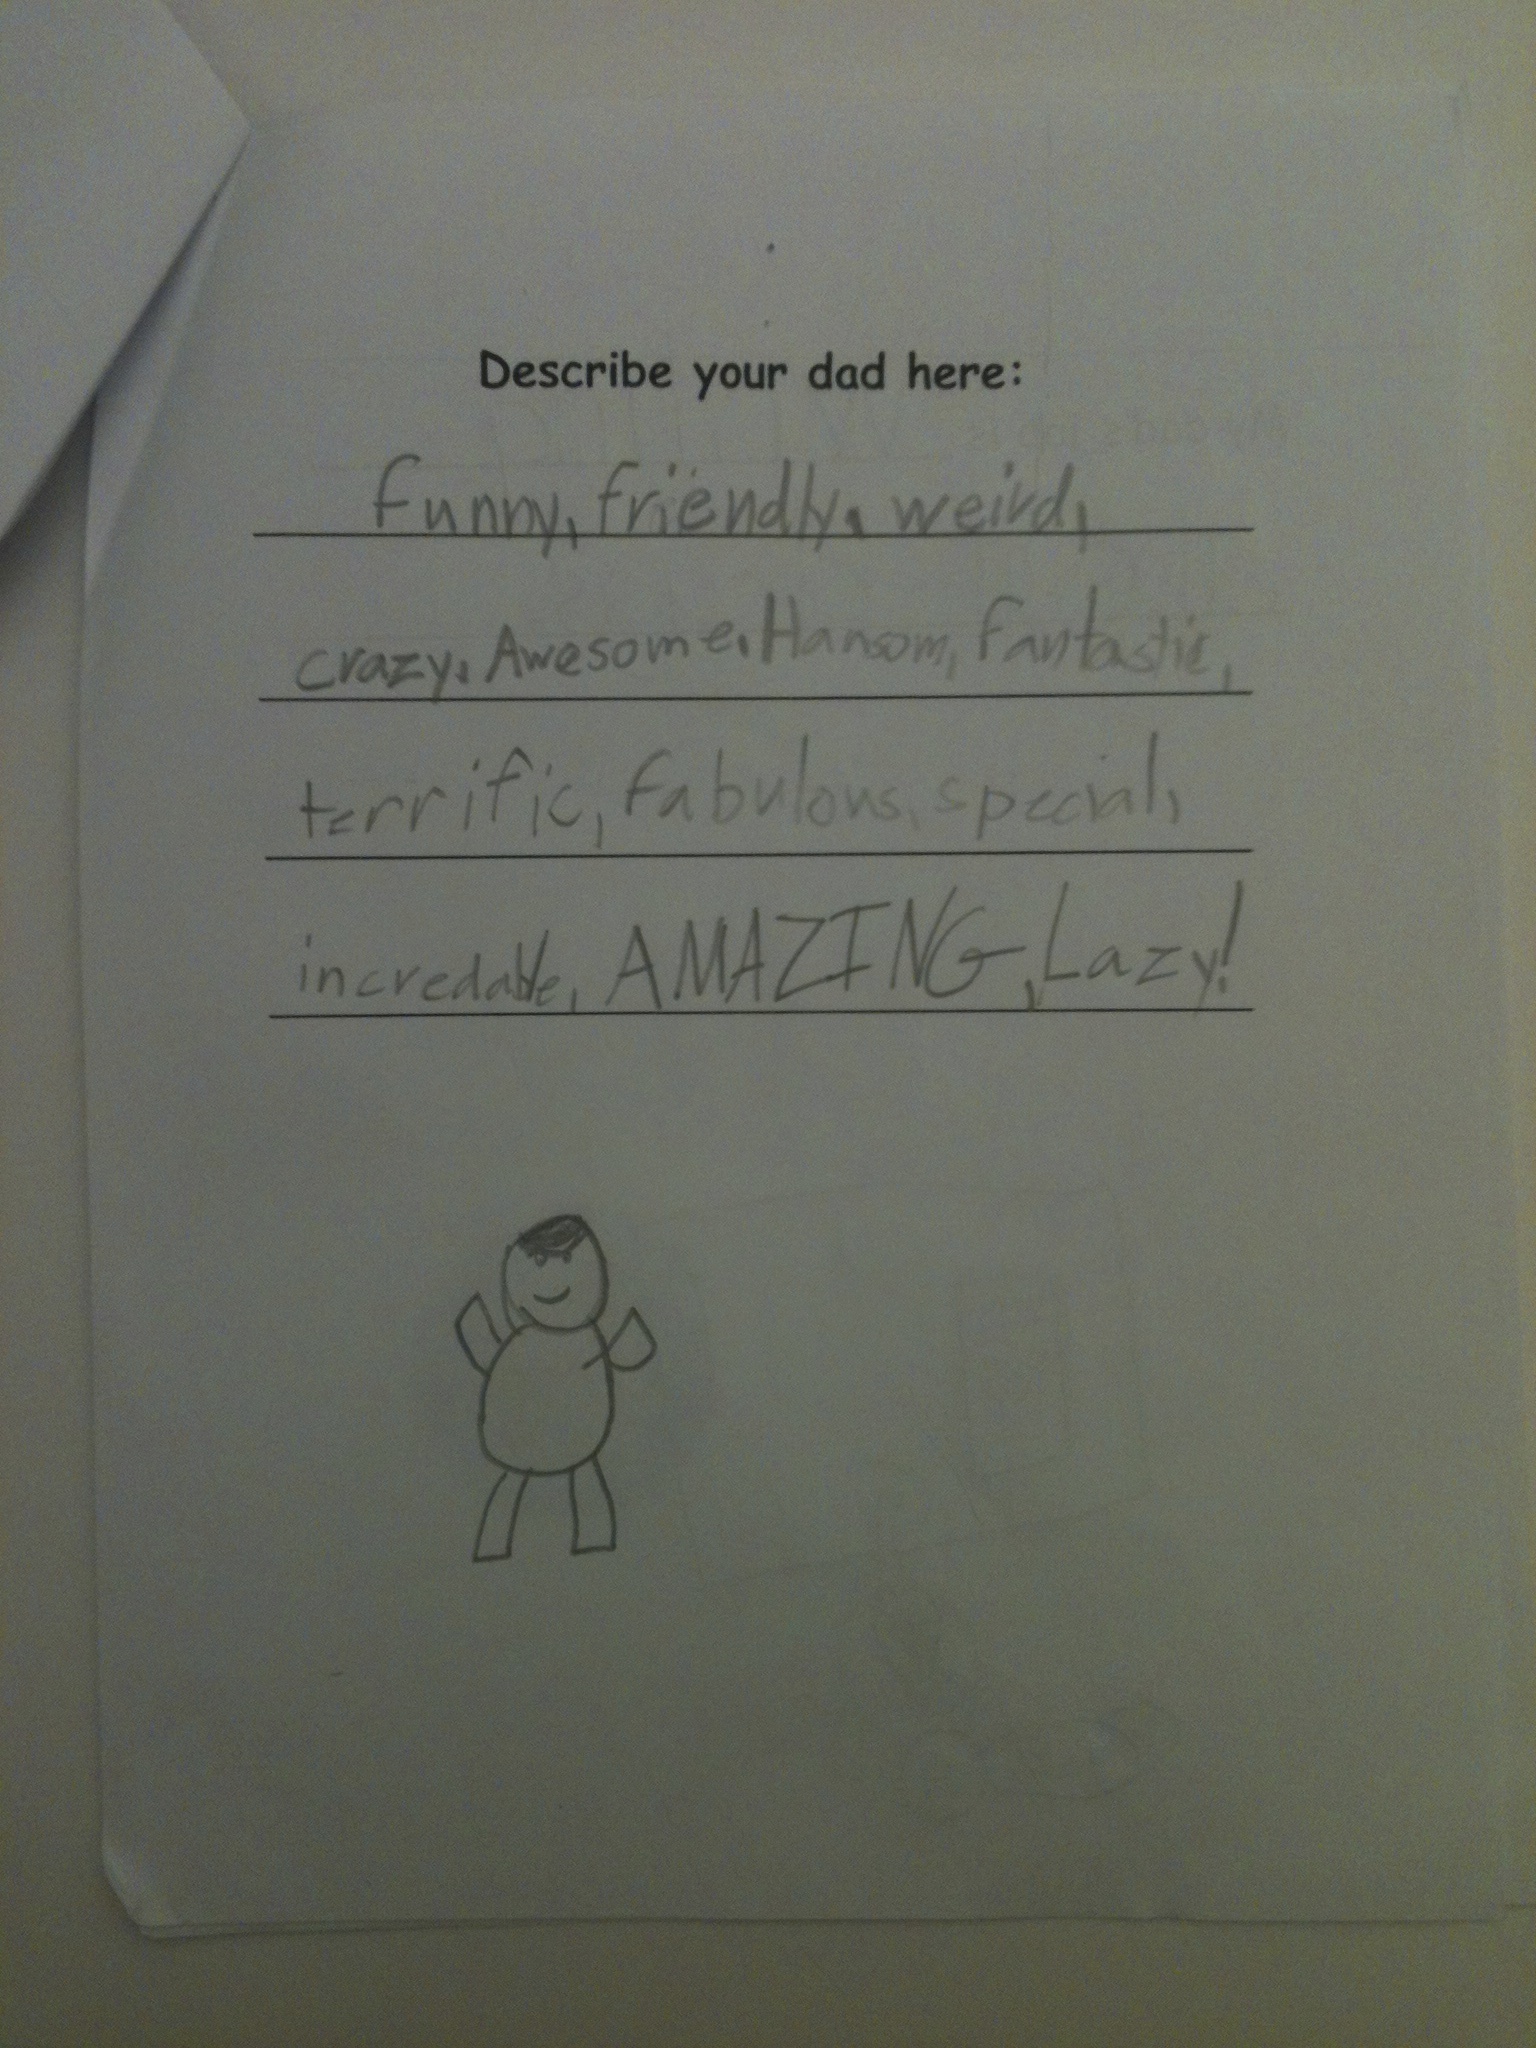 Describe your dad here:
funny, friendly, weird,
crazy, Awesome, Hansom, fantastic,
terrific, fabulous, special,
incredable, AMAZING, Lazy!